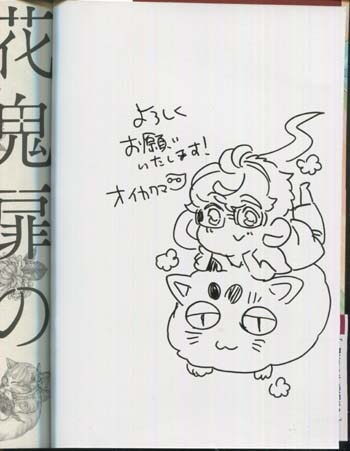 花鬼扉の
よろしく
お願い
いたします!
オイカワマコ